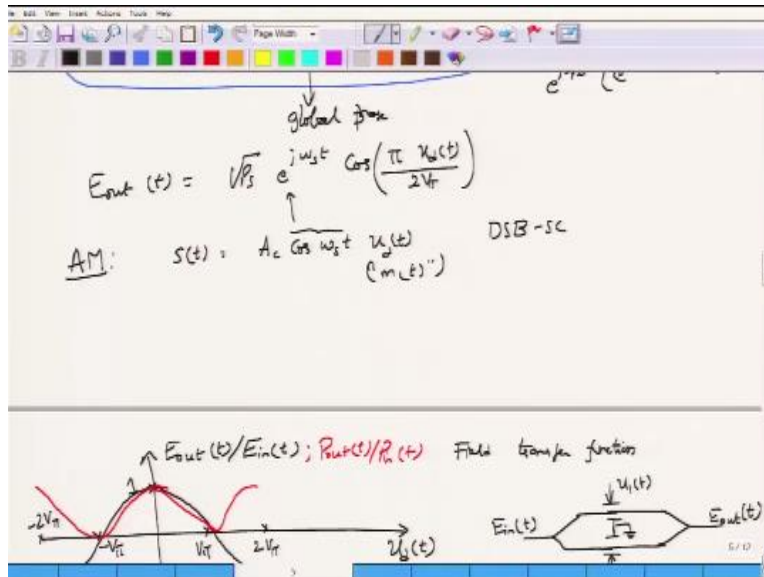 Edit View Insert Actions Tools Help
Page Width
B I
global
e^{jω_s t}
E_out (t) = √P_s e^{jω_s t} Cos(π u_d(t) / 2V_π)
AM: S(t) = A_c Cos ω_s t u_d(t) DSB-SC
("m(t)")
E_out(t)/E_in(t) ; P_out(t)/P_in(t) Field transfer function
1
u_1(t)
-2V_π -V_π V_π 2V_π u_d(t)
E_in(t) E_out(t)